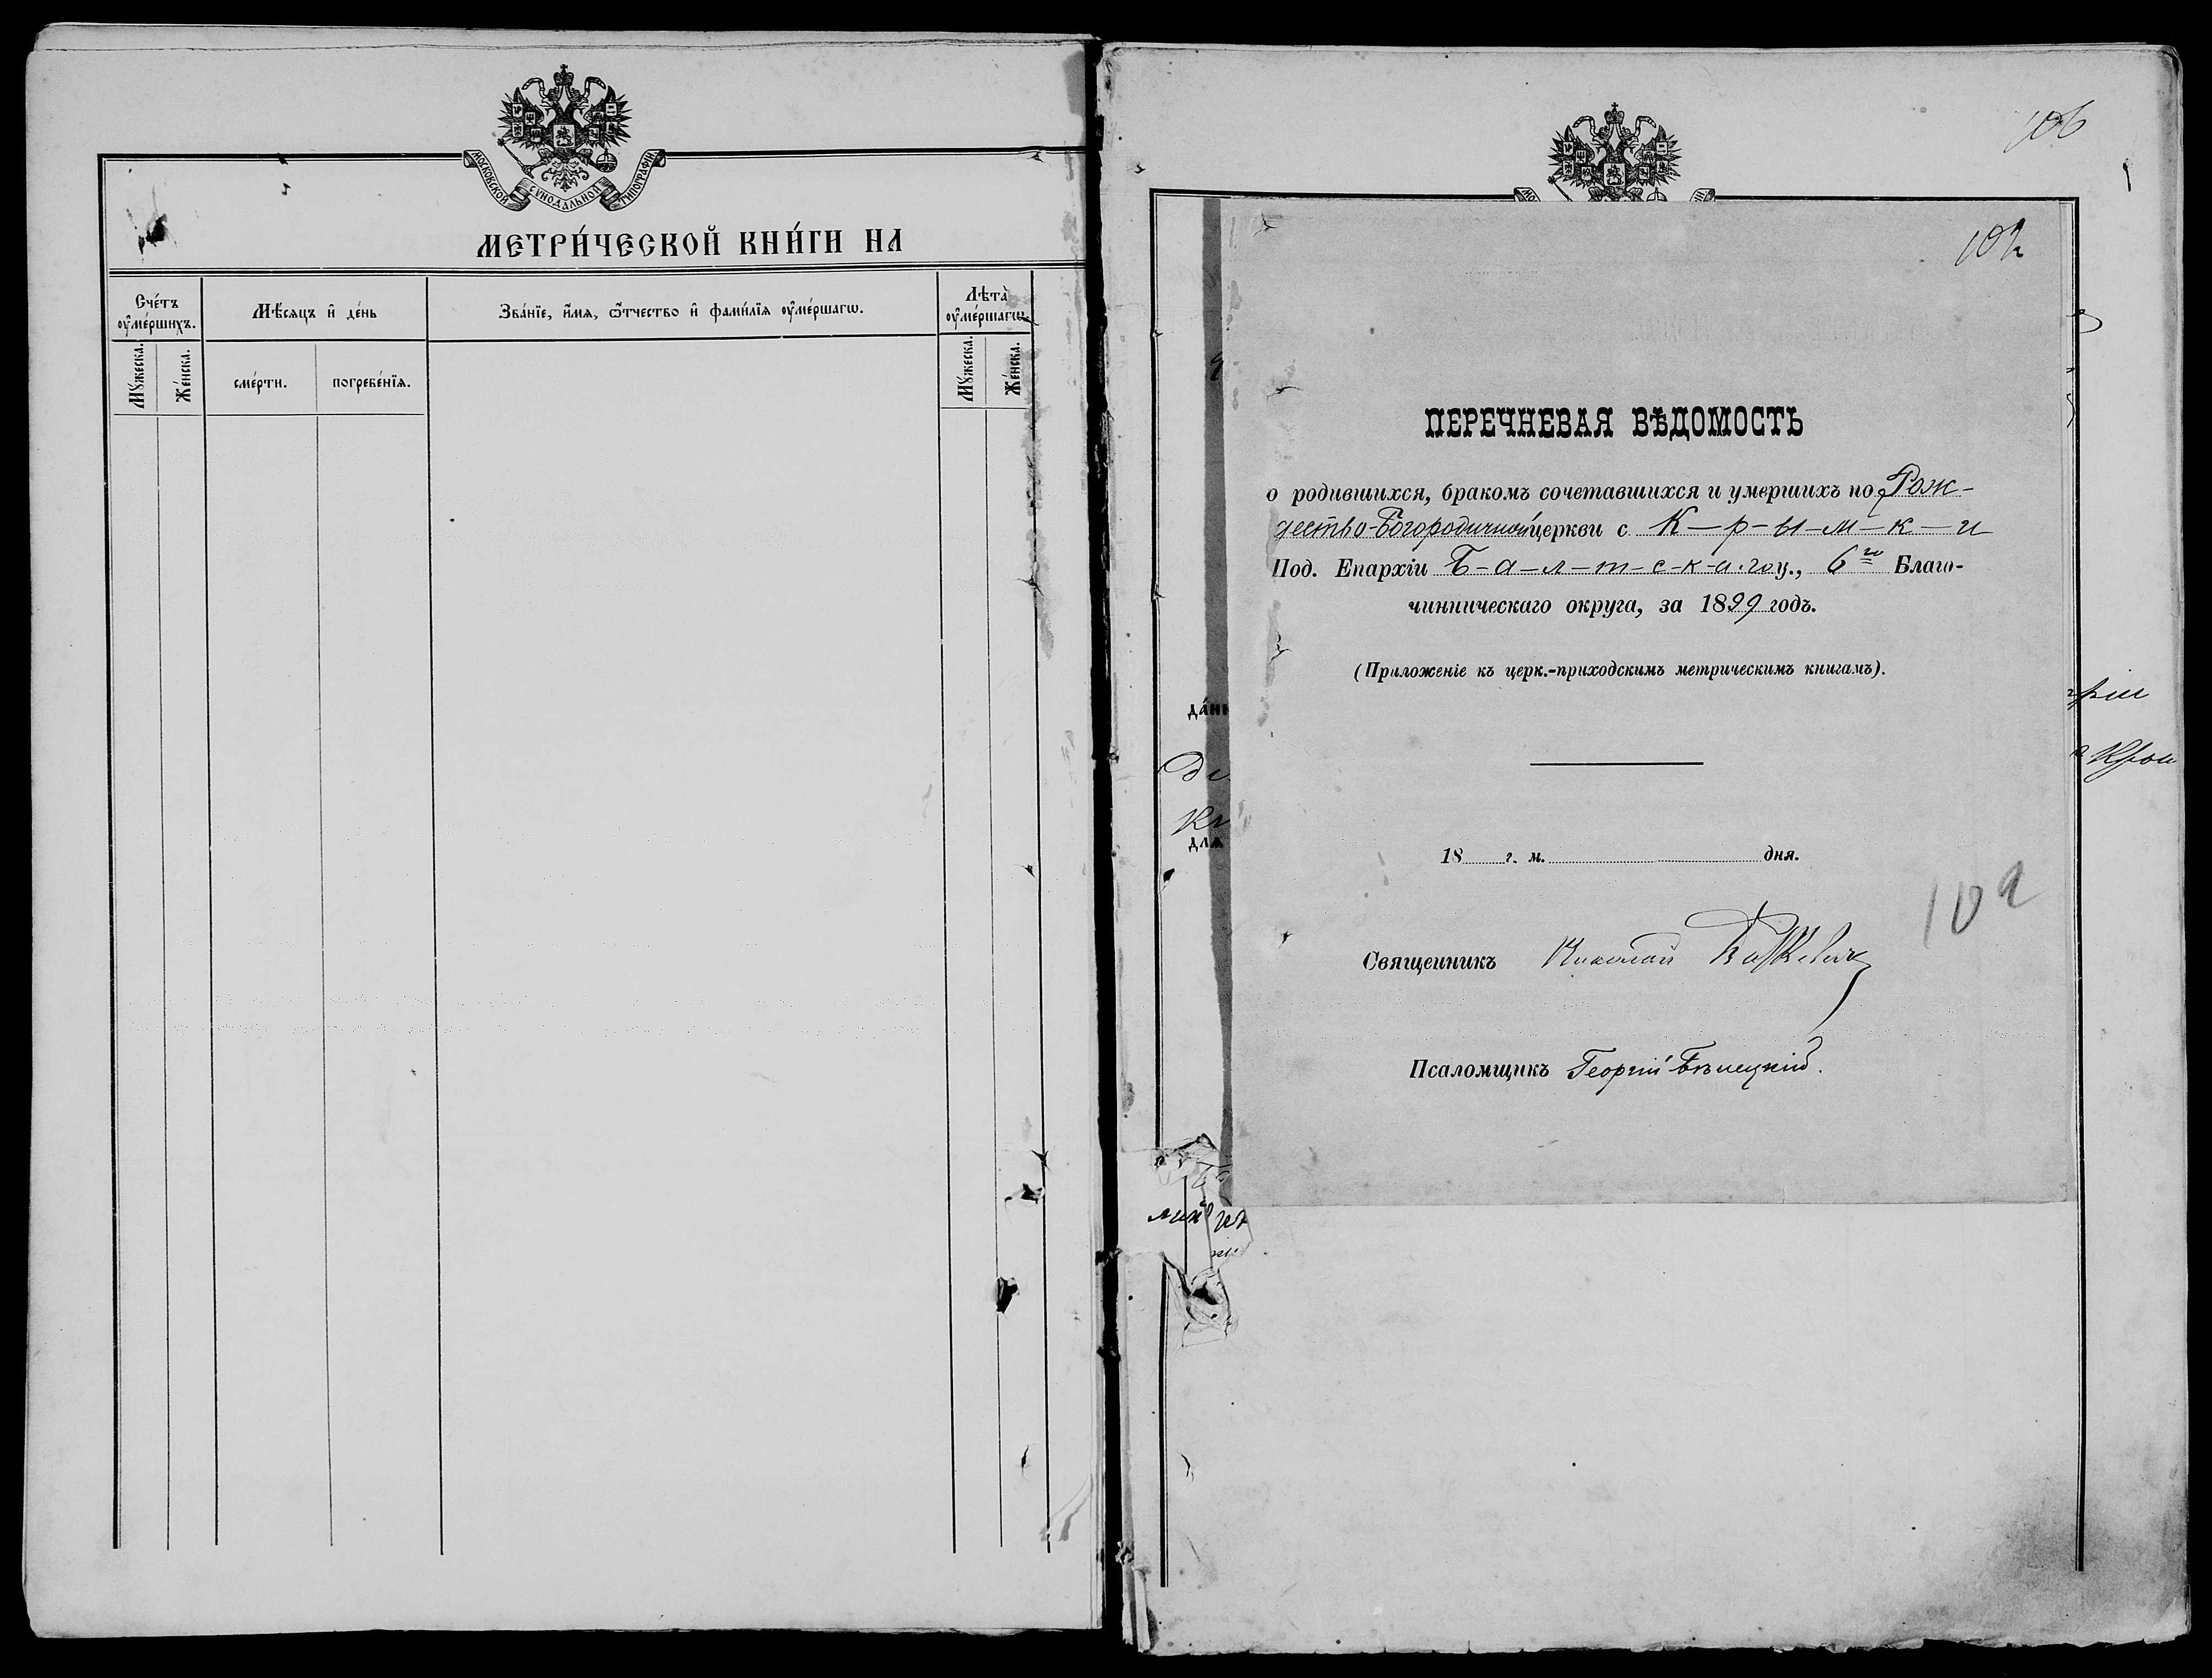 МОСКОВСКОЙ СѴНОДАЛЬНОЙ ТИПОГРАФІИ
МЕТРИ́ЧЕСКОЙ КНИ́ГИ НА
Сче́тъ ᲂу҆ме́ршихъ.
Мѣ́сяцъ и҆ де́нь
Зва́нїе, и҆́мя, ѻ҆́тчество и҆ фами́лїя ᲂу҆ме́ршагѡ.
Лѣта̀ ᲂу҆ме́ршагѡ.
Мꙋ́жеска.
Же́нска.
сме́рти.
погребе́нїя.
Мꙋ́жеска.
Же́нска.
106
102
ПЕРЕЧНЕВАЯ ВѢДОМОСТЬ
о родившихся, бракомъ сочетавшихся и умершихъ по Рож-
дество-Богородичной церкви с. К-р-ы-м-к-и
Под. Епархіи Б-а-л-т-с-к-а-го у., 6го Благо-
чинническаго округа, за 1899 годъ.
(Приложеніе къ церк.-приходскимъ метрическимъ книгамъ).
да́нн
для
18 г. м. дня.
102
Священникъ Николай
Псаломщикъ Георгій